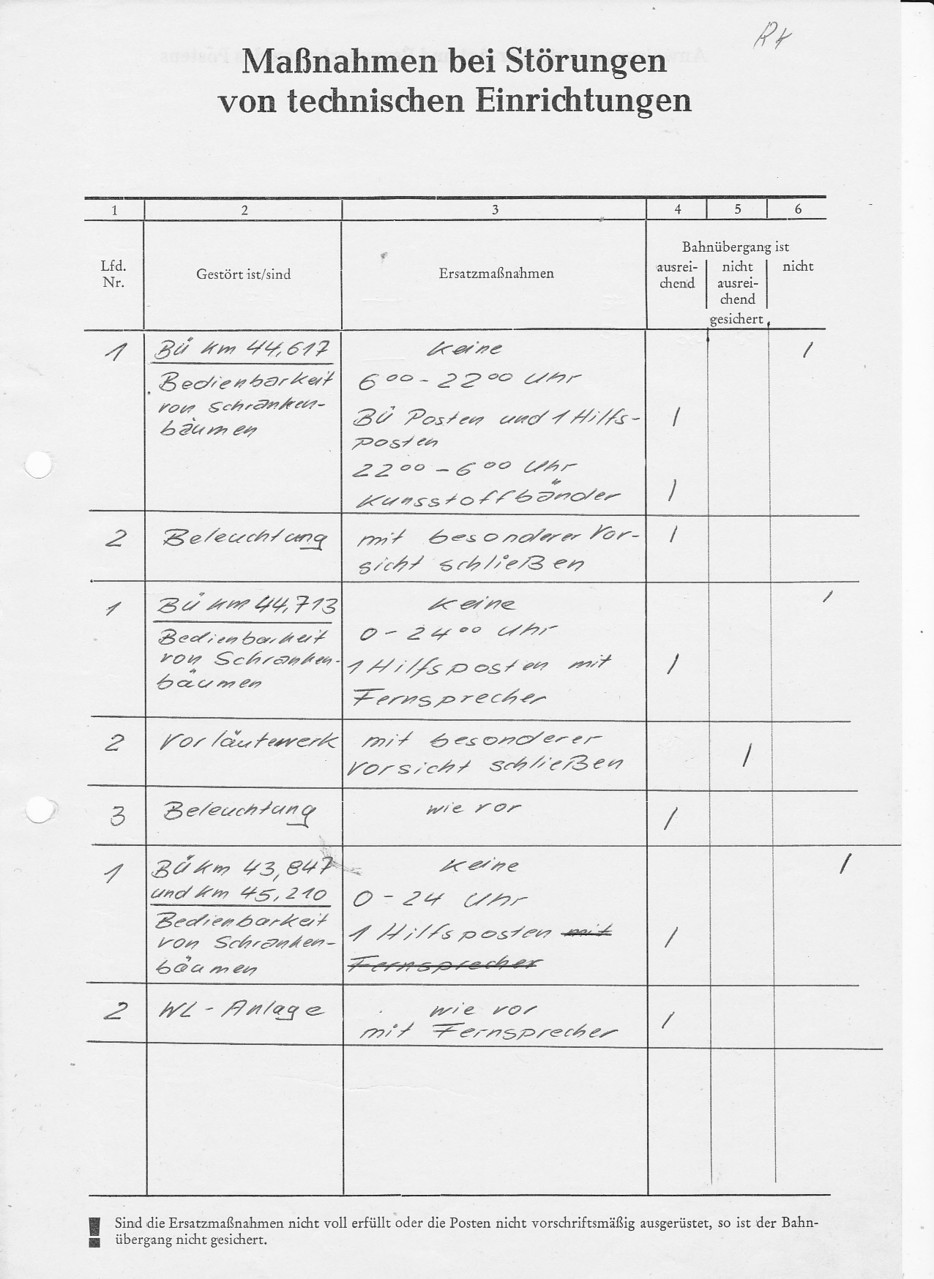 Rk
Maßnahmen bei Störungen
von technischen Einrichtungen
1 2 3 4 5 6
Lfd. Nr.
Gestört ist/sind
Ersatzmaßnahmen
Bahnübergang ist
ausrei-
chend
nicht
ausrei-
chend
nicht
gesichert
1 BÜ km 44,617 keine /
Bedienbarkeit 6⁰⁰ - 22⁰⁰ Uhr
von Schranken- BÜ Posten und 1 Hilfs- /
bäumen posten
22⁰⁰ - 6⁰⁰ Uhr
Kunsstoffbänder /
2 Beleuchtung mit besonderer Vor- /
sicht schließen
1 BÜ km 44,713 keine /
Bedienbarkeit 0 - 24⁰⁰ Uhr
von Schranken- 1 Hilfsposten mit /
bäumen Fernsprecher
2 Vorläutewerk mit besonderer /
Vorsicht schließen
3 Beleuchtung wie vor /
1 BÜ km 43,847 keine /
und km 45,210 0 - 24 Uhr
Bedienbarkeit 1 Hilfsposten mit /
von Schranken- Fernsprecher
bäumen
2 WL - Anlage wie vor /
mit Fernsprecher
! Sind die Ersatzmaßnahmen nicht voll erfüllt oder die Posten nicht vorschriftsmäßig ausgerüstet, so ist der Bahn-
übergang nicht gesichert.